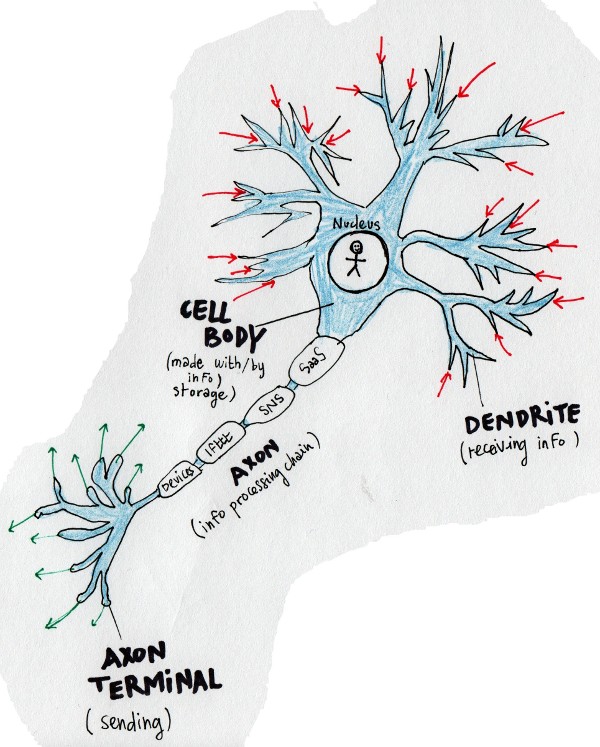 Nucleus
CELL
BODY
(made with/by
info)
storage)
SaaS
SNS
Ifttt
Devices
AXON
(info processing chain)
DENDRITE
(receiving info)
AXON
TERMINAL
(sending)